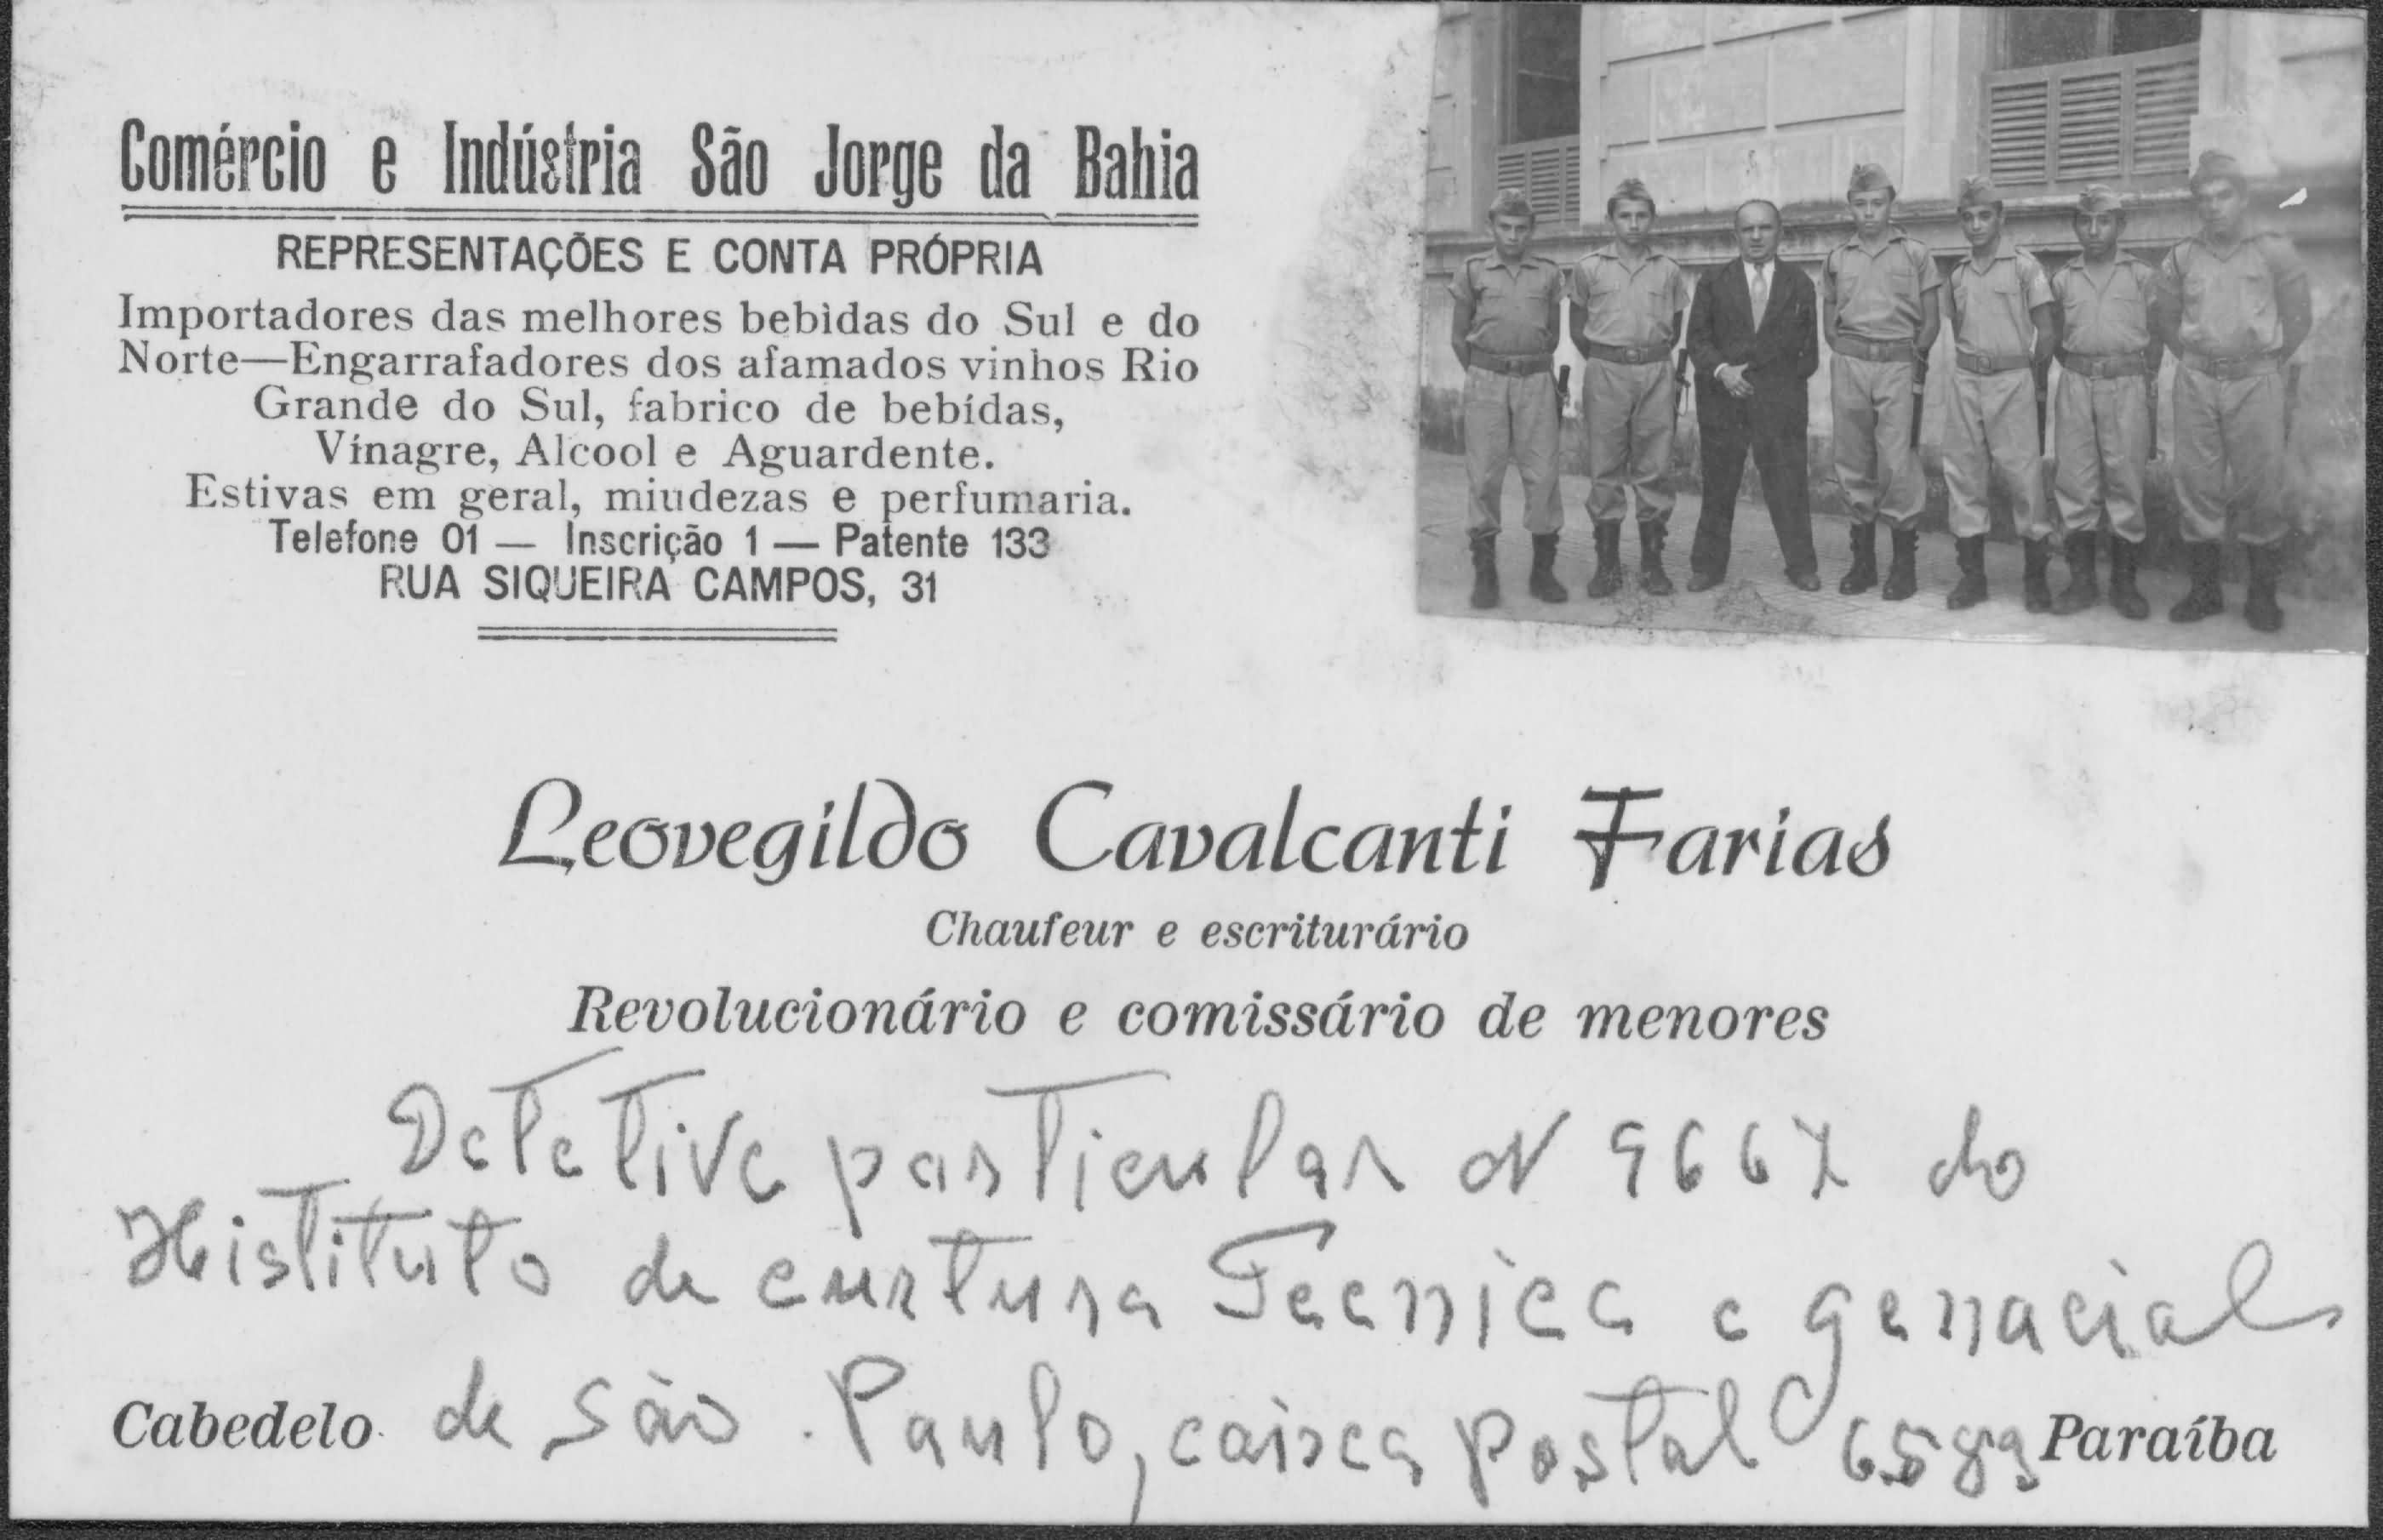 Comércio e Indústria São Jorge da Bahia
REPRESENTAÇÕES E CONTA PRÓPRIA
Importadores das melhores bebidas do Sul e do
Norte—Engarrafadores dos afamados vinhos Rio
Grande do Sul, fabrico de bebídas,
Vínagre, Alcool e Aguardente.
Estivas em geral, miudezas e perfumaria.
Telefone 01 — Inscrição 1 — Patente 133
RUA SIQUEIRA CAMPOS, 31
Leovegildo Cavalcanti Farias
Chaufeur e escriturário
Revolucionário e comissário de menores
Detetive particular N 9667 do
Histituto de curtura Tecnica e genacial
Cabedelo de São Paulo, caixa postal 6589 Paraíba